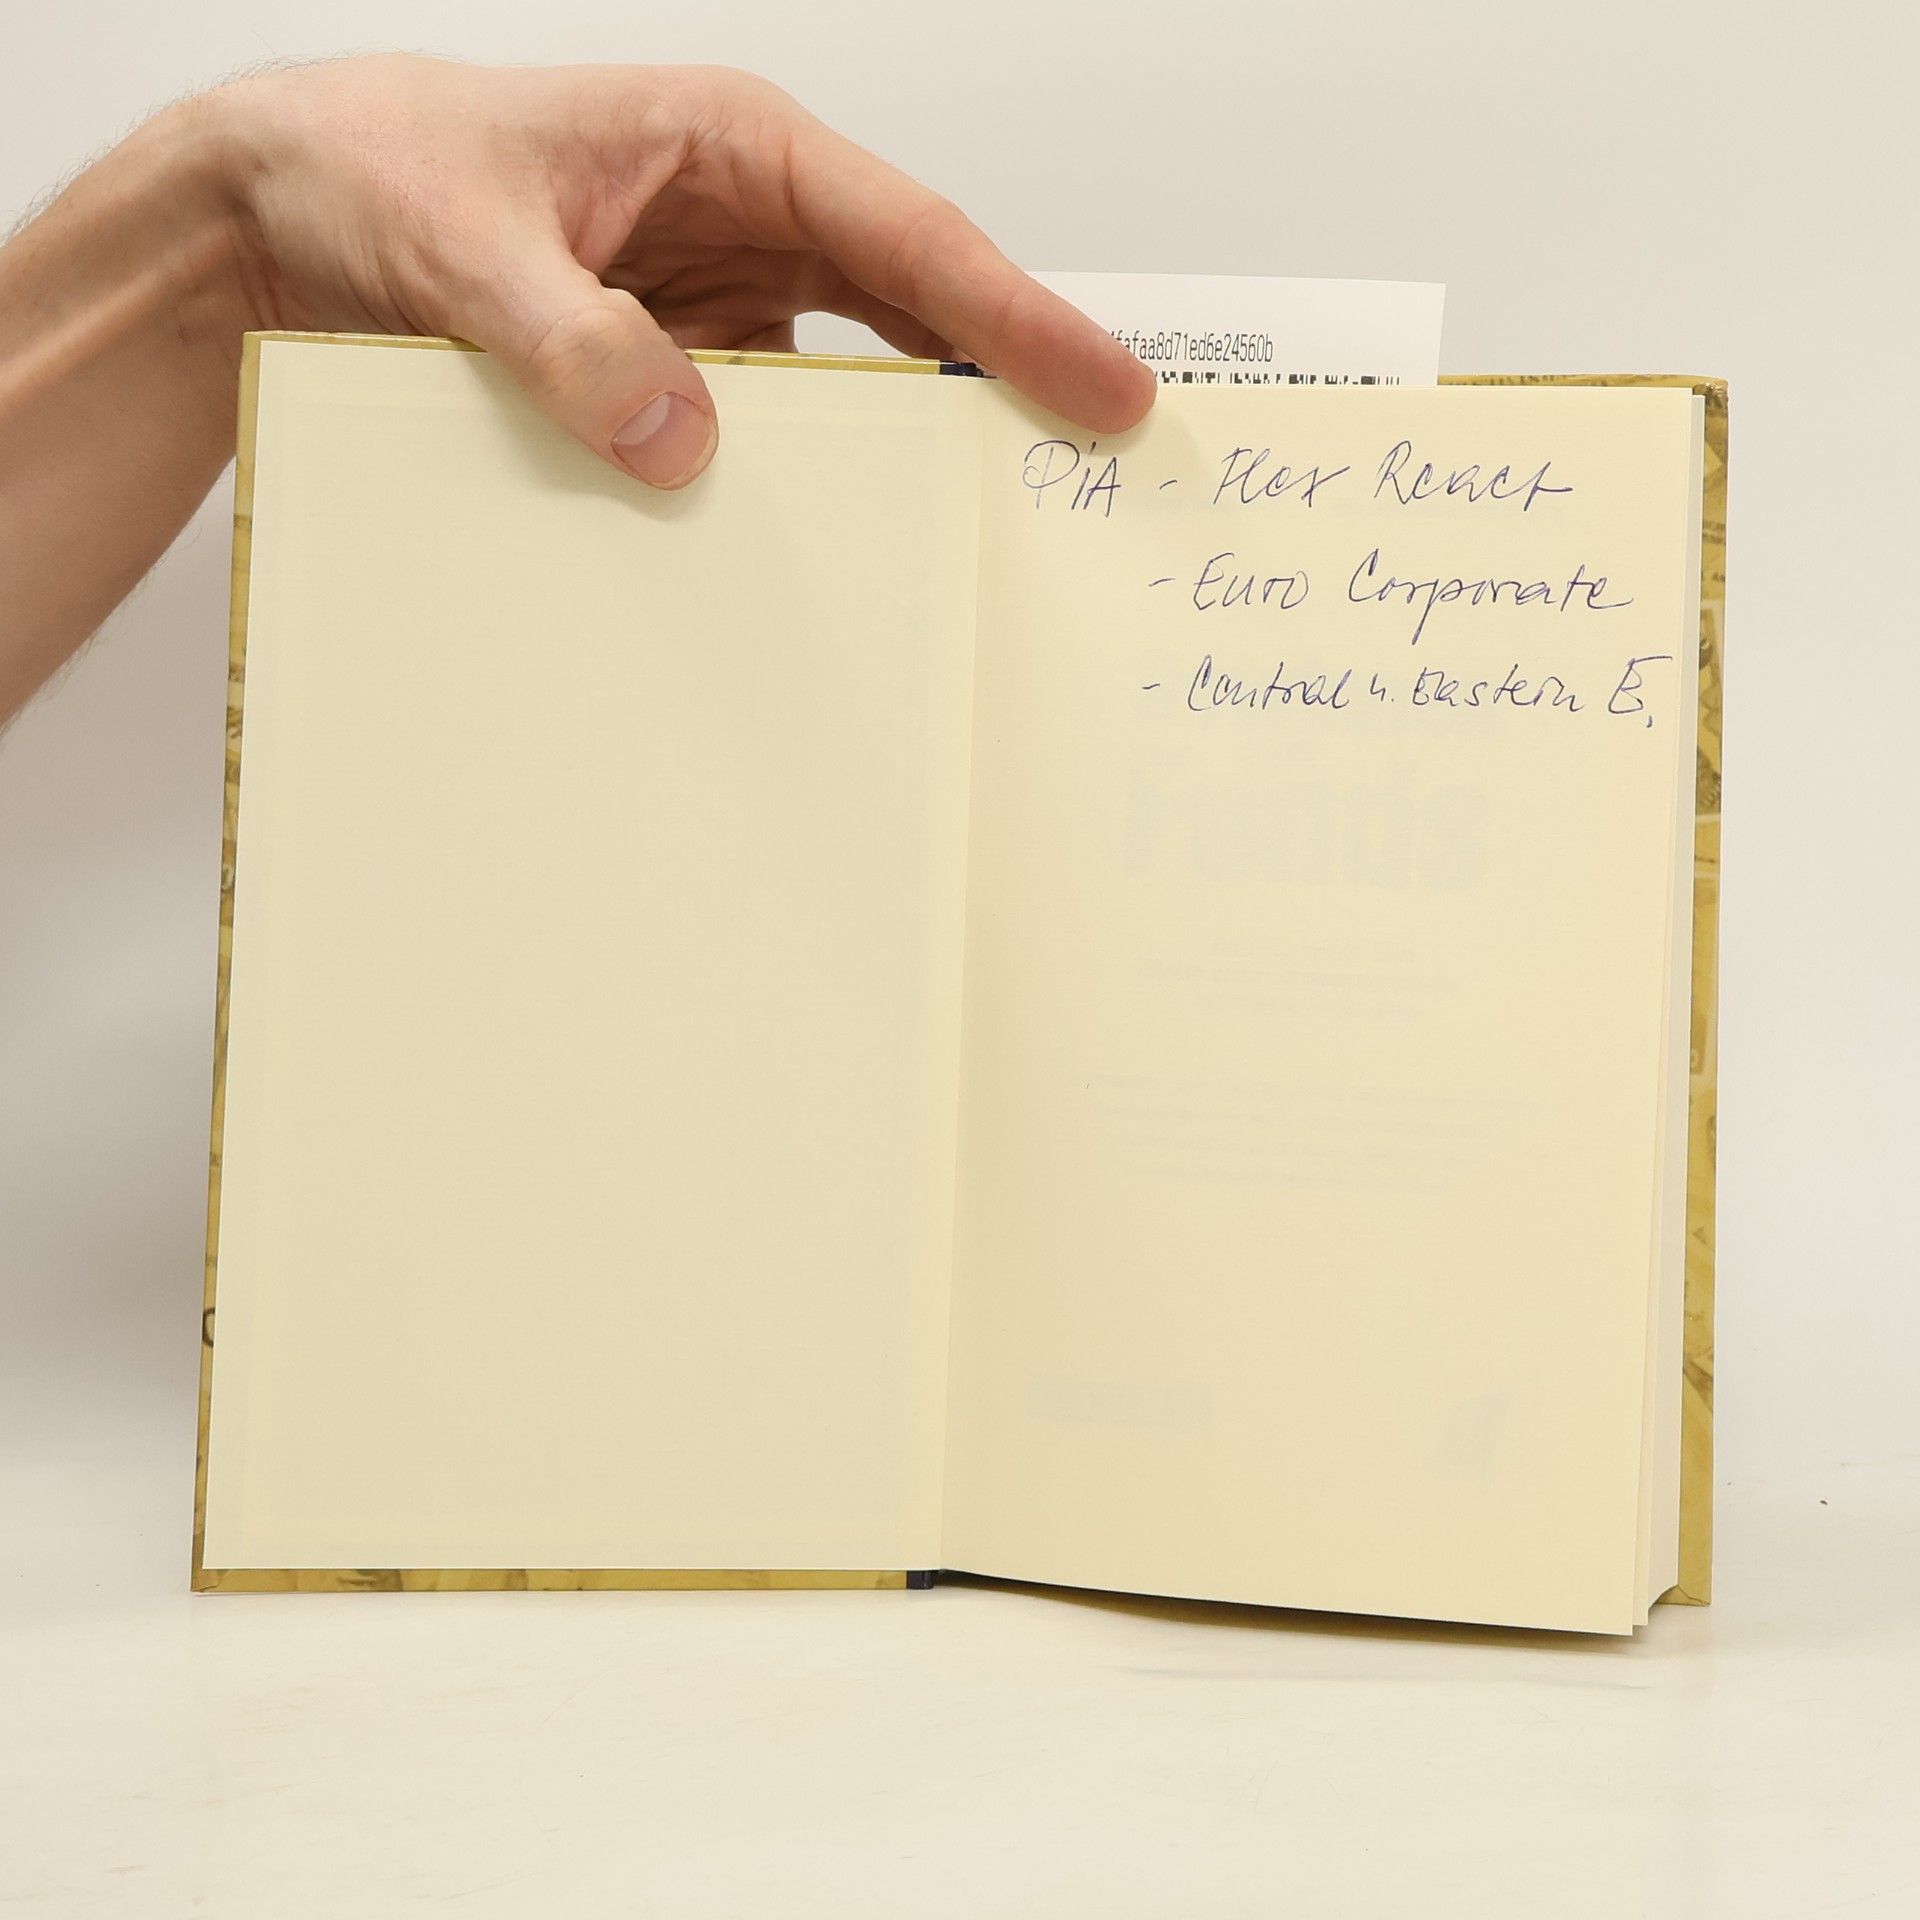 fafaa8d71ed6e24560b
PiA - Flex React
- Euro Corporate
- Central u. Eastern E.